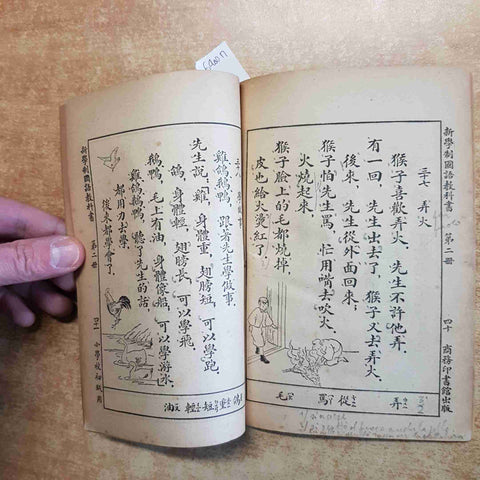 新學制國語教科書 第二冊
四十 商務印書館出版
三七 弄火
猴子喜歡弄火，先生不許他弄。
有一回，先生出去了，猴子又去弄火。
後來，先生從外面回來；
猴子怕先生罵，忙用嘴去吹火，
火燒起來，
猴子臉上的毛都燒掉，
皮也給火燙紅了。
弄 從 罵 毛
雞鴿鵝鴨，跟着先生學做事，
先生說，雞，身體重，翅膀短，可以學跑，
鴿，身體輕，翅膀長，可以學飛，
鵝鴨，毛上有油，身體像船，可以學游水，
雞鴿鵝鴨，聽了先生的話，
都用力去學，
後來都學會了，
重 短 輕 油
新學制國語教科書 第二冊
四一 小學校初級用